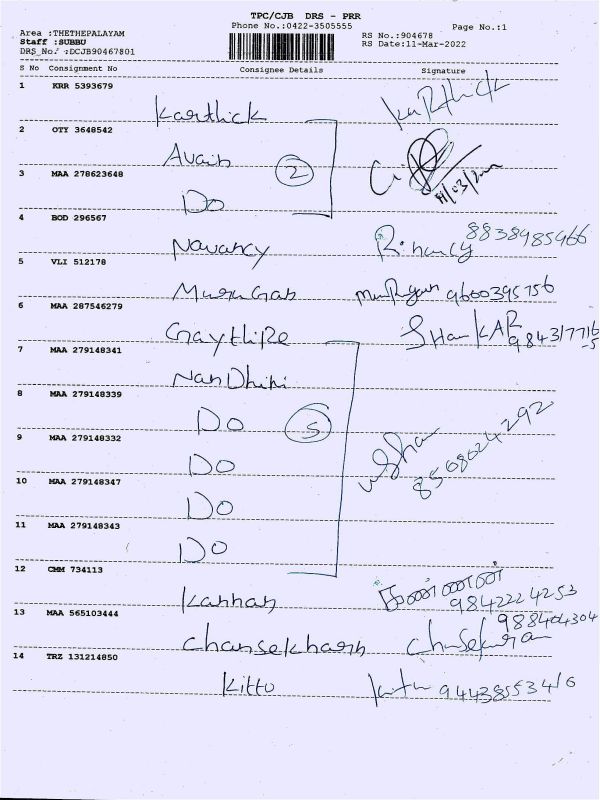 TPC/CJB DRS - PRR
Phone No.:0422-3505555 Page No.:1
Area :THETHEPALAYAM
Staff :SUBBU RS No.:904678
DRS_No. :DCJB90467801 RS Date:11-Mar-2022
S No Consignment No Consignee Details Signature
1 KRR 5393679
Karthick KaRthick
2 OTY 3648542
3 MAA 278623648
2
Do 11/03/2022
4 BOD 296567
8838985966
5 VLI 512178
MuruGan 9600395756
6 MAA 287546279
GaythiRe ShanKAR
7 MAA 279148341
NanDhini
8 MAA 279148339
Do 5
9 MAA 279148332
Do
8568624292
10 MAA 279148347
Do
11 MAA 279148343
Do
12 CMM 734113
Kannan கண்ணன்
9842224253
13 MAA 565103444
988404304
Chansekharn
14 TRZ 131214850
Kitto 9443855346